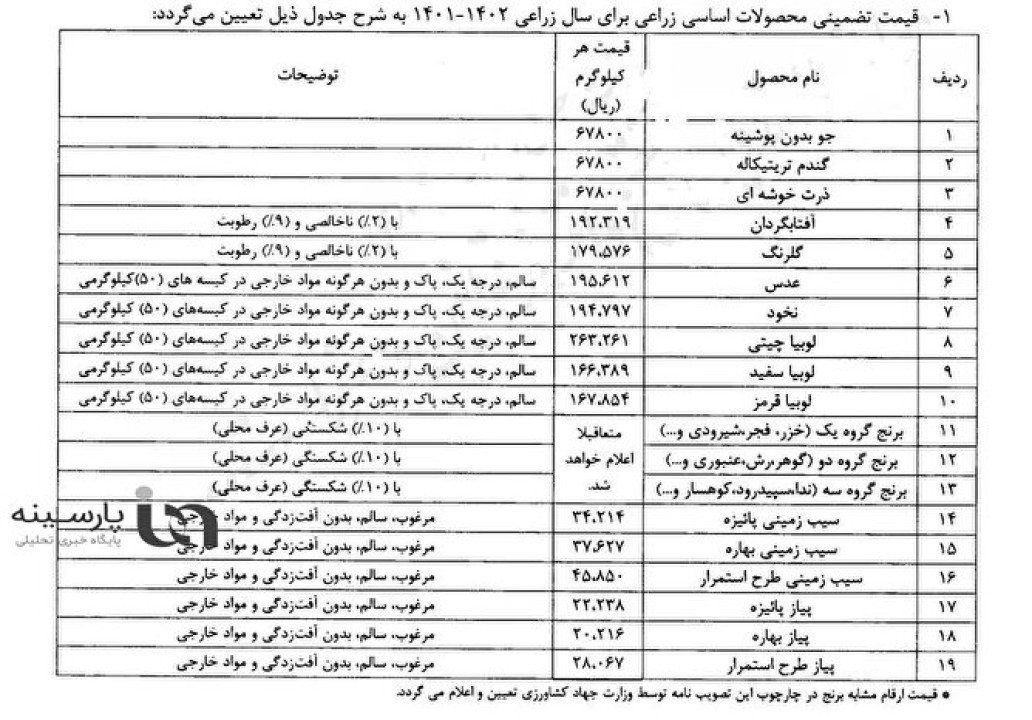 ۱- قیمت تضمینی محصولات اساسی زراعی برای سال زراعی ۱۴۰۲-۱۴۰۱ به شرح جدول ذیل تعیین می‌گردد:
ردیف نام محصول قیمت هر کیلوگرم (ریال) توضیحات
۱ جو بدون پوشینه ۶۷۸۰۰
۲ گندم تریتیکاله ۶۷۸۰۰
۳ ذرت خوشه ای ۶۷۸۰۰
۴ آفتابگردان ۱۹۲،۳۱۹ با (۲٪) ناخالصی و (۹٪) رطوبت
۵ گلرنگ ۱۷۹،۵۷۶ با (۲٪) ناخالصی و (۹٪) رطوبت
۶ عدس ۱۹۵،۶۱۲ سالم، درجه یک، پاک و بدون هرگونه مواد خارجی در کیسه های (۵۰)کیلوگرمی
۷ نخود ۱۹۴،۷۹۷ سالم، درجه یک، پاک و بدون هرگونه مواد خارجی در کیسه‌های (۵۰) کیلوگرمی
۸ لوبیا چیتی ۲۶۳،۲۶۱ سالم، درجه یک، پاک و بدون هرگونه مواد خارجی در کیسه‌های (۵۰) کیلوگرمی
۹ لوبیا سفید ۱۶۶،۳۸۹ سالم، درجه یک، پاک و بدون هرگونه مواد خارجی در کیسه‌های (۵۰) کیلوگرمی
۱۰ لوبیا قرمز ۱۶۷،۸۵۴ سالم، درجه یک، پاک و بدون هرگونه مواد خارجی در کیسه‌های (۵۰) کیلوگرمی
۱۱ برنج گروه یک (خزر، فجر،شیرودی و...) متعاقبلا با (۱۰٪) شکستگی (عرف محلی)
۱۲ برنج گروه دو (گوهر،رش،عنبوری و...) اعلام خواهد با (۱۰٪) شکستگی (عرف محلی)
۱۳ برنج گروه سه (ندا،سپیدرود،کوهسار و...) شد. با (۱۰٪) شکستگی (عرف محلی)
۱۴ سیب زمینی پائیزه ۳۴،۲۱۴ مرغوب، سالم، بدون آفت‌زدگی و مواد خارجی
۱۵ سیب زمینی بهاره ۳۷،۶۲۷ مرغوب، سالم، بدون آفت‌زدگی و مواد خارجی
۱۶ سیب زمینی طرح استمرار ۴۵،۸۵۰ مرغوب، سالم، بدون آفت‌زدگی و مواد خارجی
۱۷ پیاز پائیزه ۲۲،۲۳۸ مرغوب، سالم، بدون آفت‌زدگی و مواد خارجی
۱۸ پیاز بهاره ۲۰،۲۱۶ مرغوب، سالم، بدون آفت‌زدگی و مواد خارجی
۱۹ پیاز طرح استمرار ۲۸،۰۶۷ مرغوب، سالم، بدون آفت‌زدگی و مواد خارجی
• قیمت ارقام مشابه برنج در چارچوب این تصویب نامه توسط وزارت جهاد کشاورزی تعیین و اعلام می گردد.
پارسینه
پایگاه خبری تحلیلی